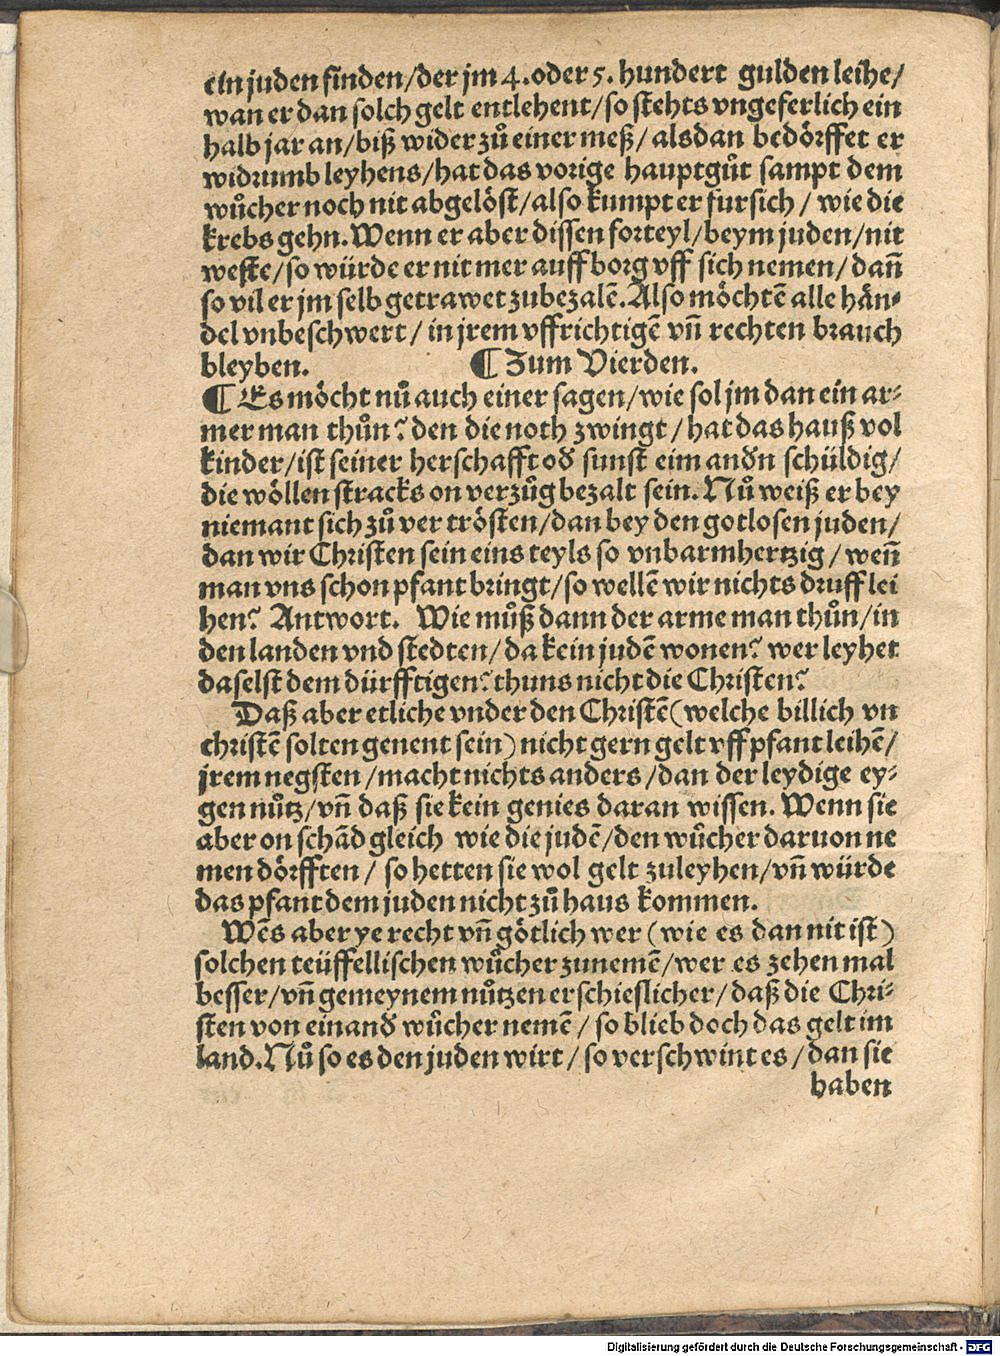 ein juden finden/der jm 4. oder 5. hundert gulden leihe/
wan er dan solch gelt entlehent/so stehts vngeferlich ein
halb jar an/biß wider zů einer meß/alsdan bedörffet er
widrumb leyhens/hat das vorige hauptgůt sampt dem
wůcher noch nit abgelöst/also kumpt er fursich/wie die
krebs gehn. Wenn er aber dissen forteyl/beym juden/nit
weste/so würde er nit mer auff borg vff sich nemen/dañ
so vil er jm selb getrawet zubezalẽ. Also möchtẽ alle hän⸗
del vnbeschwert/in jrem vffrichtigẽ vñ rechten brauch
bleyben. ¶ Zum Vierden.
¶ Es möcht nů auch einer sagen/wie sol jm dan ein ar⸗
mer man thůn? den die noth zwingt/hat das hauß vol
kinder/ist seiner herschafft oď sunst eim anďn schüldig/
die wöllen stracks on verzůg bezalt sein. Nů weiß er bey
niemant sich zů vertrösten/dan bey den gotlosen juden/
dan wir Christen sein eins teyls so vnbarmhertzig/weñ
man vns schon pfant bringt/so wellẽ wir nichts druff lei
hen? Antwort. Wie můß dann der arme man thůn/in
den landen vnd stedten/da kein judẽ wonen? wer leyhet
daselst dem dürfftigen? thuns nicht die Christen?
Daß aber etliche vnder den Christẽ (welche billich vn
christẽ solten genent sein) nicht gern gelt vff pfant leihẽ/
jrem negsten/macht nichts anders/dan der leydige ey⸗
gen nůtz/vñ daß sie kein genies daran wissen. Wenn sie
aber on schãd gleich wie die judẽ/den wůcher daruon ne
men dörfften/so hetten sie wol gelt zuleyhen/vñ würde
das pfant dem juden nicht zů haus kommen.
Wẽs aber ye recht vñ götlich wer (wie es dan nit ist)
solchen teüffellischen wůcher zunemẽ/wer es zehen mal
besser/vñ gemeynem nůtzen erschieslicher/daß die Chri⸗
sten von einanď wůcher nemẽ/so blieb doch das gelt im
land. Nů so es den juden wirt/so verschwint es/dan sie
haben
Digitalisierung gefördert durch die Deutsche Forschungsgemeinschaft - DFG